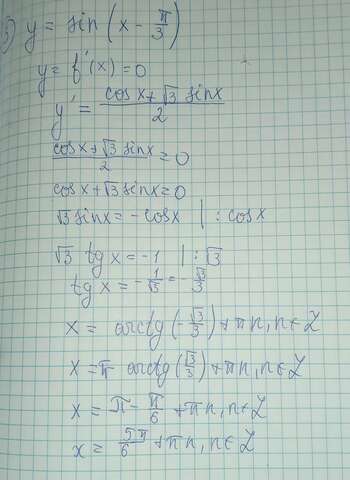 3) y = sin (x - π/3)
y = f'(x) = 0
y' = (cos x + √3 sin x)/2
(cos x + √3 sin x)/2 = 0
cos x + √3 sin x = 0
√3 sin x = - cos x | : cos x
√3 tg x = -1 | : √3
tg x = - 1/√3 = - √3/3
x = arctg (- √3/3) + πn, n ∈ Z
x = π - arctg (√3/3) + πn, n ∈ Z
x = π - π/6 + πn, n ∈ Z
x = 5π/6 + πn, n ∈ Z